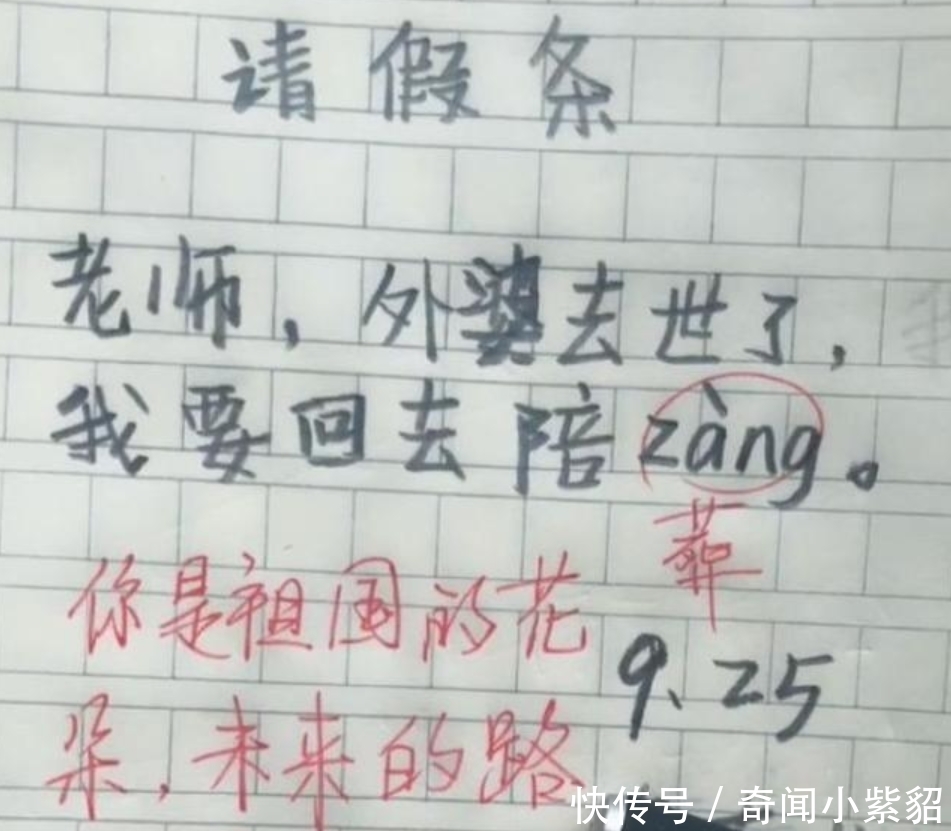 请假条
老师，外婆去世了，
我要回去陪zàng。
葬
你是祖国的花
9.25
朵，未来的路
快传号 / 奇闻小紫貂